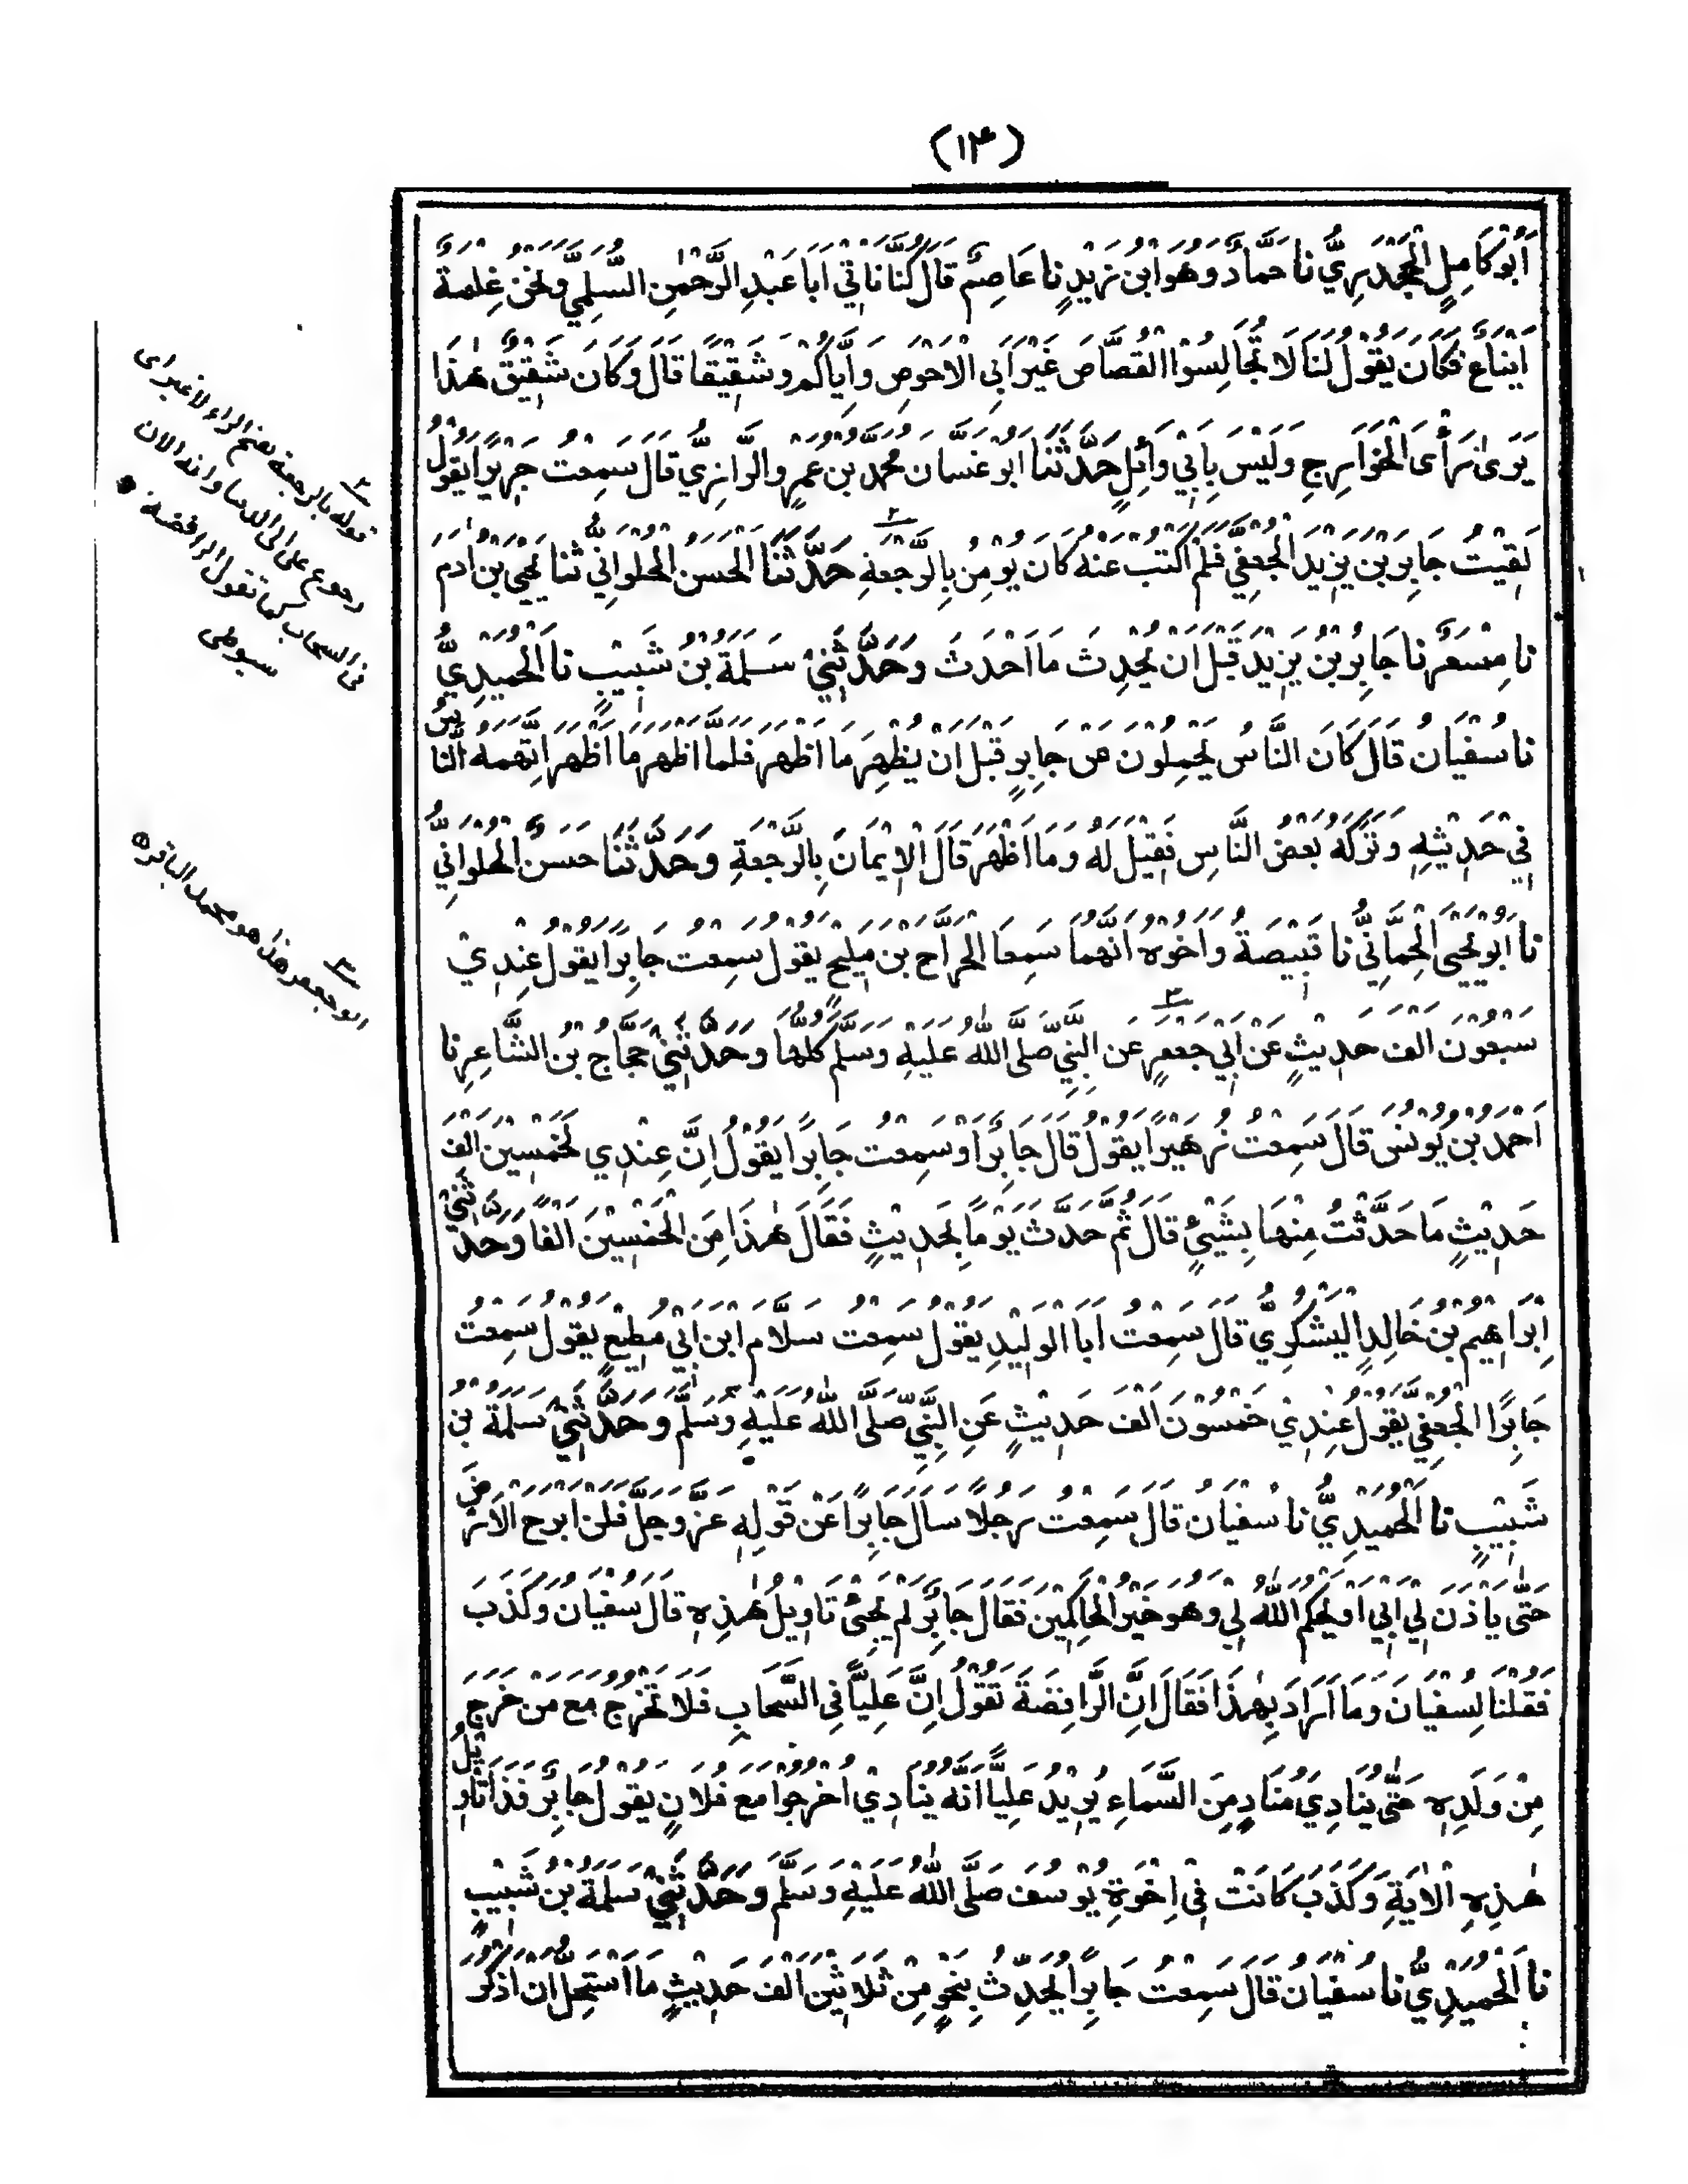 (۱۴)
اَبُوْ كَامِلٍ الْجَحْدَرِيُّ نا حَمَّادٌ وَهُوَ ابْنُ زَيْدٍ نا عَاصِمٌ قَالَ كُنَّا نَاْتِيْ اَبَا عَبْدِ الرَّحْمٰنِ السُّلَمِيَّ وَنَحْنُ غِلْمَةٌ
اَيْفَاعٌ فَكَانَ يَقُوْلُ لَنَا لَا تُجَالِسُوْا الْقُصَّاصَ غَيْرَ اَبِي الْاَحْوَصِ وَاِيَّاكُمْ وَشَقِيْقًا قَالَ وَكَانَ شَقِيْقٌ هٰذَا
يَرَىٰ رَأْىَ الْخَوَارِجِ وَلَيْسَ بِاَبِيْ وَائِلٍ حَدَّثَنَا اَبُوْ غَسَّانَ مُحَمَّدُ بْنُ عَمْرٍو الرَّازِيُّ قَالَ سَمِعْتُ جَرِيْرًا يَقُوْلُ
لَقِيْتُ جَابِرَ بْنَ يَزِيْدَ الْجُعْفِيَّ فَلَمْ اَكْتُبْ عَنْهُ كَانَ يُؤْمِنُ بِالرَّجْعَةِ حَدَّثَنَا الْحَسَنُ الْحُلْوَانِيُّ ثنا يَحْيَى بْنُ اٰدَمَ
نا مِسْعَرٌ نا جَابِرُ بْنُ يَزِيْدَ قَبْلَ اَنْ يُحْدِثَ مَا اَحْدَثَ وَحَدَّثَنِيْ سَلَمَةُ بْنُ شَبِيْبٍ نا الْحُمَيْدِيُّ
نا سُفْيَانُ قَالَ كَانَ النَّاسُ يَحْمِلُوْنَ عَنْ جَابِرٍ قَبْلَ اَنْ يُظْهِرَ مَا اَظْهَرَ فَلَمَّا اَظْهَرَ مَا اَظْهَرَ اتَّهَمَهُ النَّاسُ
فِيْ حَدِيْثِهٖ وَتَرَكَهُ بَعْضُ النَّاسِ فَقِيْلَ لَهُ وَمَا اَظْهَرَ قَالَ الْاِيْمَانَ بِالرَّجْعَةِ وَحَدَّثَنَا حَسَنٌ الْحُلْوَانِيُّ
نا اَبُوْ يَحْيَى الْحِمَّانِيُّ نا قَبِيْصَةُ وَاَخُوْهُ اَنَّهُمَا سَمِعَا الْجَرَّاحَ بْنَ مَلِيْحٍ يَقُوْلُ سَمِعْتُ جَابِرًا يَقُوْلُ عِنْدِيْ
سَبْعُوْنَ اَلْفَ حَدِيْثٍ عَنْ اَبِيْ جَعْفَرٍ عَنِ النَّبِيِّ صَلَّى اللّٰهُ عَلَيْهِ وَسَلَّمَ كُلُّهَا وَحَدَّثَنِيْ حَجَّاجُ بْنُ الشَّاعِرِ نا
اَحْمَدُ بْنُ يُوْنُسَ قَالَ سَمِعْتُ زُهَيْرًا يَقُوْلُ قَالَ جَابِرٌ اَوْ سَمِعْتُ جَابِرًا يَقُوْلُ اِنَّ عِنْدِي لَخَمْسِيْنَ اَلْفَ
حَدِيْثٍ مَا حَدَّثْتُ مِنْهَا بِشَيْئٍ قَالَ ثُمَّ حَدَّثَ يَوْمًا بِحَدِيْثٍ فَقَالَ هٰذَا مِنَ الْخَمْسِيْنَ اَلْفًا وَحَدَّثَنِيْ
اِبْرَاهِيْمُ بْنُ خَالِدٍ الْيَشْكُرِيُّ قَالَ سَمِعْتُ اَبَا الْوَلِيْدِ يَقُوْلُ سَمِعْتُ سَلَّامَ ابْنَ اَبِيْ مُطِيْعٍ يَقُوْلُ سَمِعْتُ
جَابِرًا الْجُعْفِيَّ يَقُوْلُ عِنْدِيْ خَمْسُوْنَ اَلْفَ حَدِيْثٍ عَنِ النَّبِيِّ صَلَّى اللّٰهُ عَلَيْهِ وَسَلَّمَ وَحَدَّثَنِيْ سَلَمَةُ بْنُ
شَبِيْبٍ نا الْحُمَيْدِيُّ نا سُفْيَانُ قَالَ سَمِعْتُ رَجُلًا سَاَلَ جَابِرًا عَنْ قَوْلِهٖ عَزَّ وَجَلَّ فَلَنْ اَبْرَحَ الْاَرْضَ
حَتّٰى يَاْذَنَ لِيْ اَبِيْ اَوْ يَحْكُمَ اللّٰهُ لِيْ وَهُوَ خَيْرُ الْحَاكِمِيْنَ فَقَالَ جَابِرٌ لَمْ يَجِئْ تَاْوِيْلُ هٰذِهٖ قَالَ سُفْيَانُ وَكَذَبَ
فَقُلْنَا لِسُفْيَانَ وَمَا اَرَادَ بِهٰذَا فَقَالَ اِنَّ الرَّافِضَةَ تَقُوْلُ اِنَّ عَلِيًّا فِى السَّحَابِ فَلَا نَخْرُجُ مَعَ مَنْ خَرَجَ
مِنْ وَلَدِهٖ حَتّٰى يُنَادِيَ مُنَادٍ مِنَ السَّمَاءِ يُرِيْدُ عَلِيًّا اَنَّهُ يُنَادِيْ اُخْرُجُوْا مَعَ فُلَانٍ يَقُوْلُ جَابِرٌ فَذَا تَاْوِيْلُ
هٰذِهِ الْاٰيَةِ وَكَذَبَ كَانَتْ فِيْ اِخْوَةِ يُوْسُفَ صَلَّى اللّٰهُ عَلَيْهِ وَسَلَّمَ وَحَدَّثَنِيْ سَلَمَةُ بْنُ شَبِيْبٍ
نا الْحُمَيْدِيُّ نا سُفْيَانُ قَالَ سَمِعْتُ جَابِرًا يُحَدِّثُ بِنَحْوٍ مِنْ ثَلَاثِيْنَ اَلْفَ حَدِيْثٍ مَا اَسْتَحِلُّ اَنْ اَذْكُرَ
۲
قوله بالرجعة بفتح الراء لا غير اى
رجوع على الى الدنيا وانه الان
فى السحاب كما تقول الرافضة
سيوطى
۳
ابو جعفر هذا هو محمد الباقر